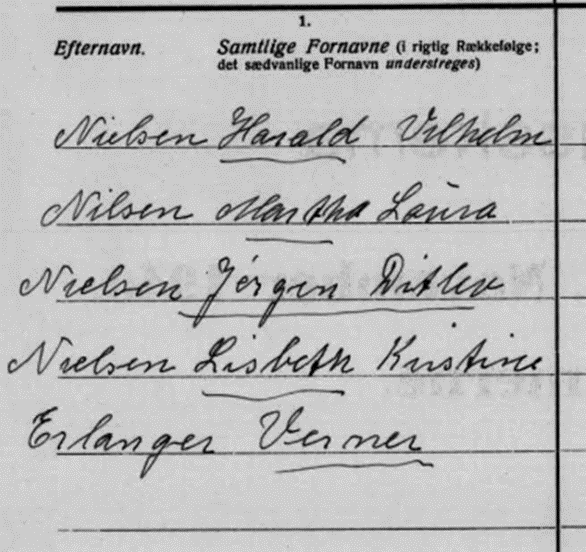 1.
Efternavn. Samtlige Fornavne (i rigtig Rækkefølge;
det sædvanlige Fornavn understreges)
Nielsen Harald Vilhelm
Nilsen Martha Laura
Nielsen Jörgen Ditlev
Nielsen Lisbeth Kristine
Erlanger Verner